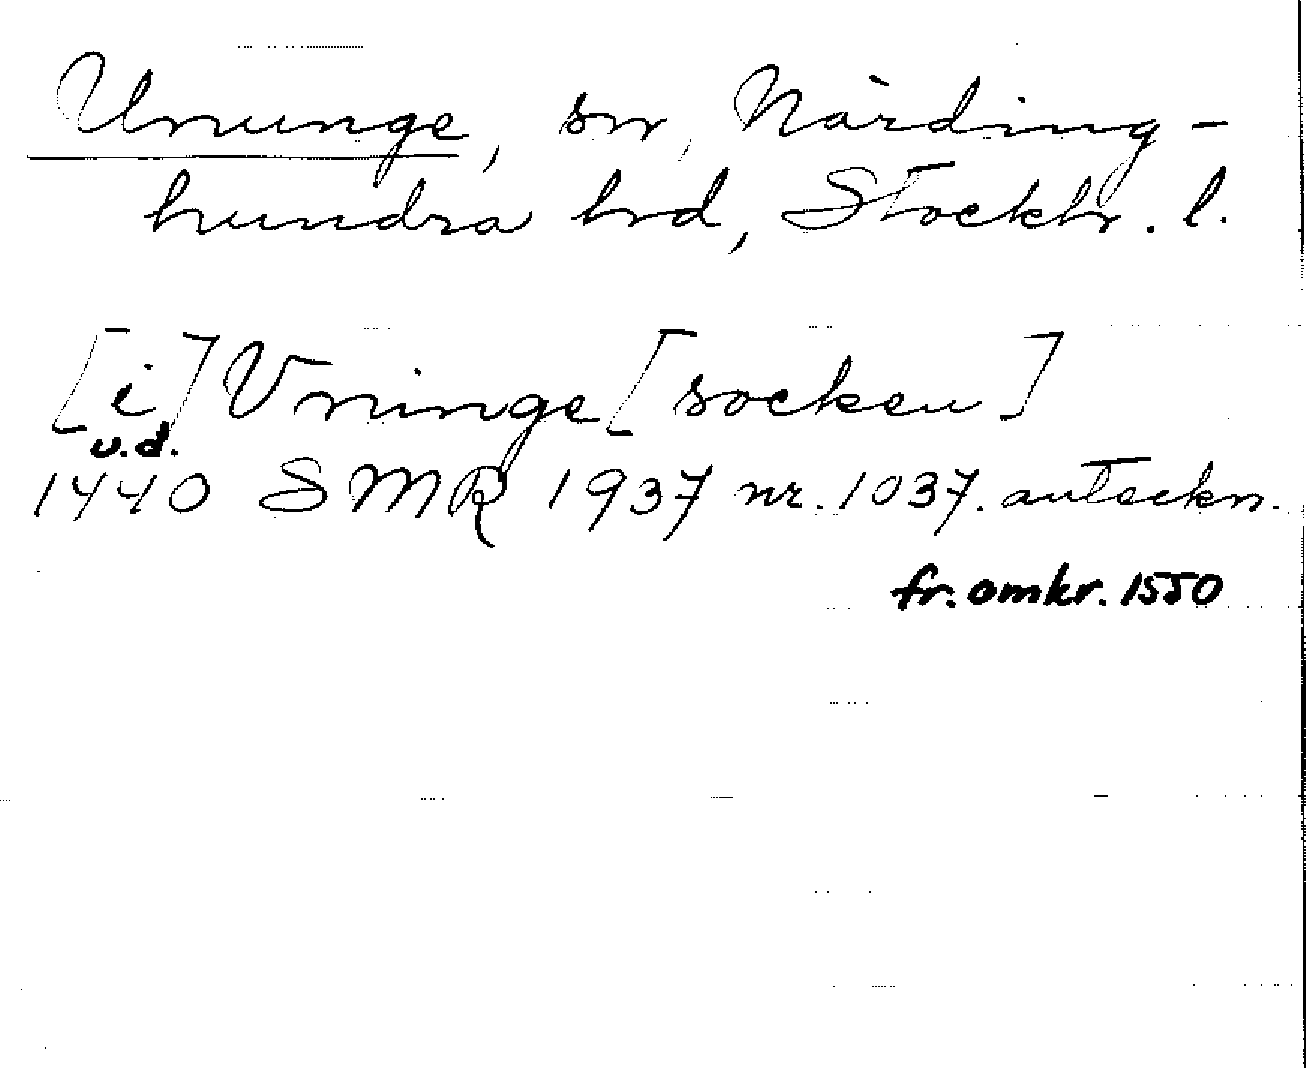 Ununge, sn, Närding-
hundra hrd, Stockh. l.
[i] Vninge [socken]
u.d.
1440 SMR 1937 nr. 1037. anteckn.
fr. omkr. 1550